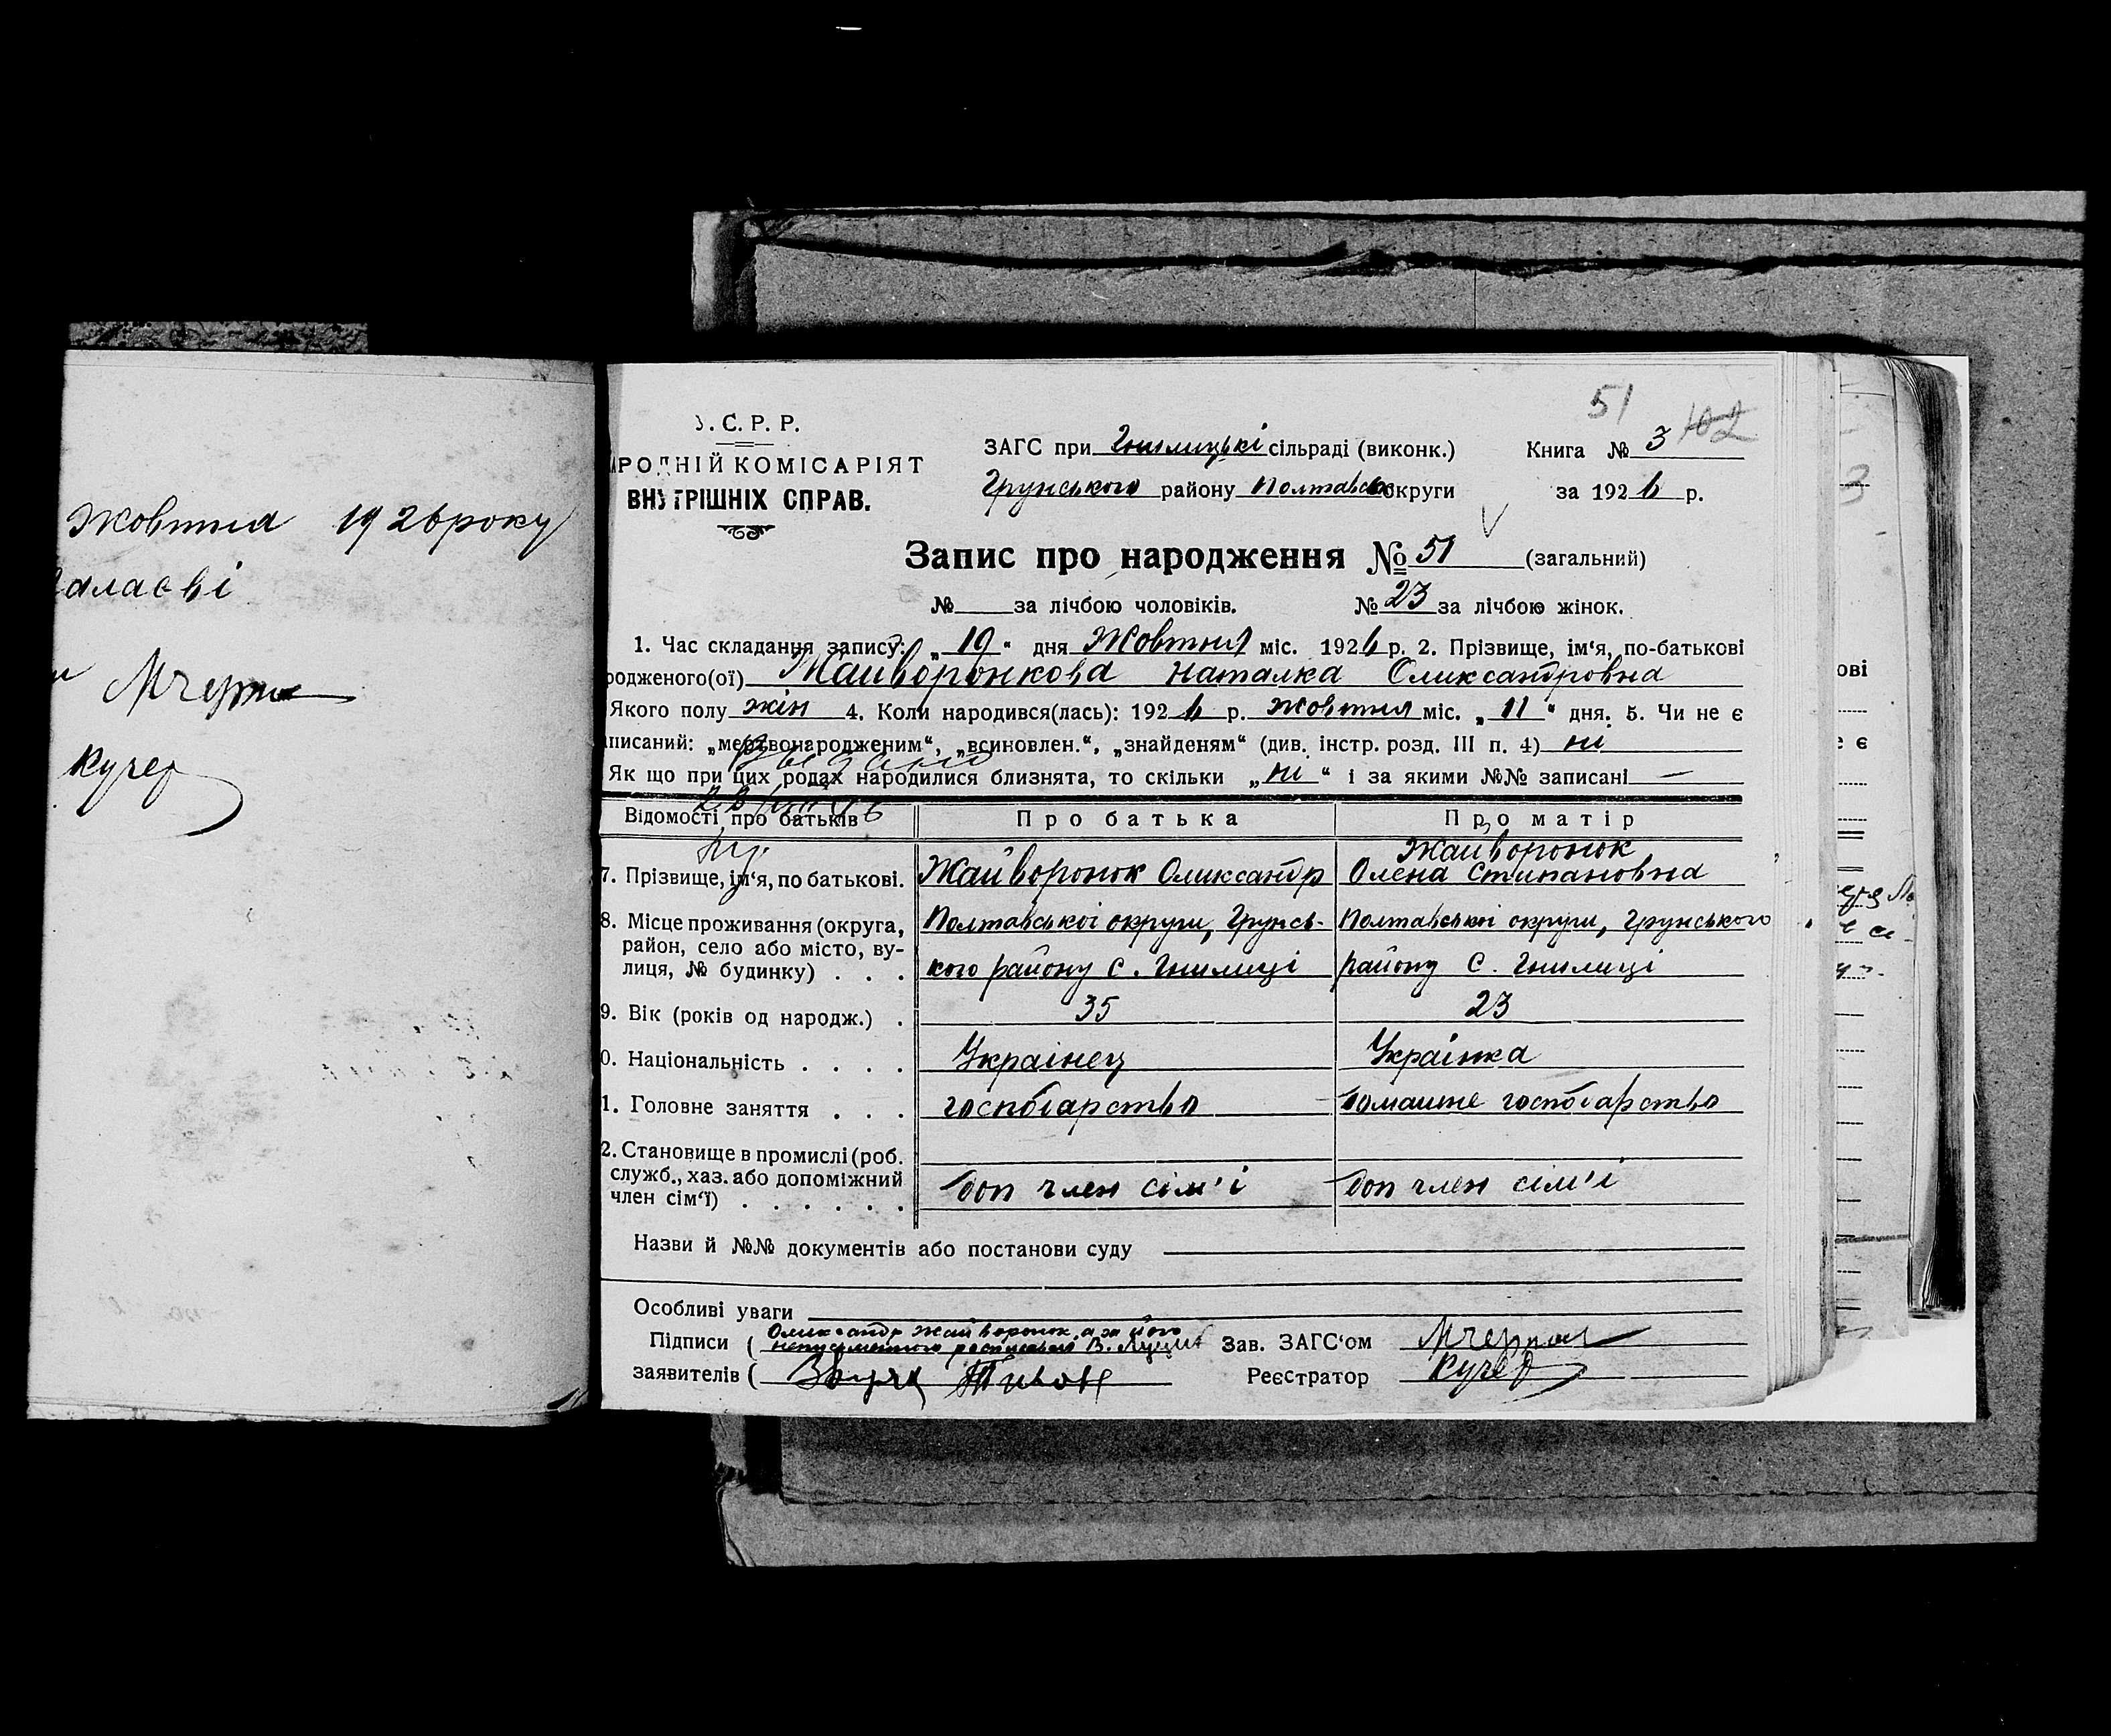 Жовтня 1926 року
кучер
51
102
У. С. Р. Р.
НАРОДНІЙ КОМІСАРІЯТ
ВНУТРІШНІХ СПРАВ.
ЗАГС при Гнилицькі сільраді (виконк.)
Грунського району Полтавськ округи
Книга № 3
за 1926 р.
Запис про народження № 51 (загальний)
№ за лічбою чоловіків. № 23 за лічбою жінок.
1. Час складання запису: „19“ дня Жовтня міс. 1926 р. 2. Прізвище, ім‘я, по-батькові
родженого(ої) Жайворонкова Наталка Оликсандровна
Якого полу жін 4. Коли народився(лась): 1926 р. Жовтня міс. „11“ дня. 5. Чи не є
писаний: „мертвонародженим“, „всиновлен.“, „знайденям“ (див. інстр. розд. III п. 4) ні
Як що при цих родах народилися близнята, то скільки „ні“ і за якими №№ записані —
Відомості про батьків Про батька Про матір
7. Прізвище, ім‘я, по батькові. Жайворонок Оликсандр Жайворонок Олена Стипановна
8. Місце проживання (округа, район, село або місто, вулиця, № будинку) . . .
Полтавської округи, Грунсь-
кого району с. Гнилиці
Полтавської округи, Грунського
району с. Гнилиці
9. Вік (років од народж.) . 35 23
0. Національність . . . . Українец Українка
1. Головне заняття . . . госпо́дарство домашне господарство
2. Становище в промислі (роб.
служб., хаз. або допоміжний
член сім‘ї) . . . . . . доп член сім'і доп член сім'і
Назви й №№ документів або постанови суду
Особливі уваги
Підписи ( Оликсандр Жайворонок, а за його
неписьменного росписався В.
заявителів (
Зав. ЗАГС‘ом
Реєстратор кучер